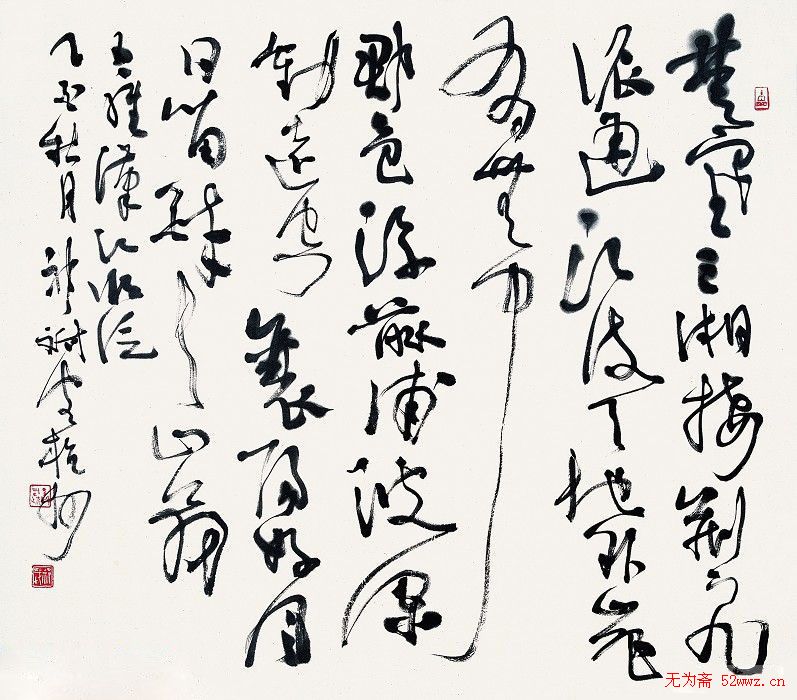 楚塞三湘接荆门九
派通江流天地外山色
有无中
郡邑浮前浦波澜
动远空襄阳好风
日留醉与山翁
王维汉江临泛
乙酉秋月
无为斋 52wwz.cn